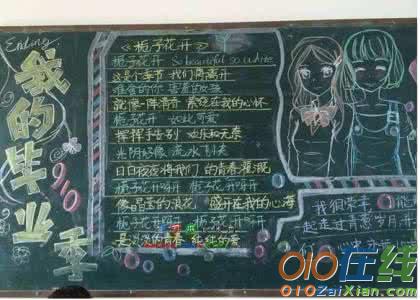 Ending:
我的毕业季
910
《栀子花开》
栀子花开 So beautiful so white
这是个季节 我们将离开
难舍的你 害羞的女孩
就像一阵清香 萦绕在我的心怀
栀子花开 如此可爱
挥挥手告别 欢乐和无奈
光阴好像 流水飞快
日日夜夜将我们的青春灌溉
栀子花开呀开 栀子花开呀开
像晶莹的浪花 盛开在我的心海
栀子花开呀开 栀子花开呀开
是淡淡的青春 纯纯的爱
我很荣幸
起走过青葱岁月
010在线
010ZaiXian.com